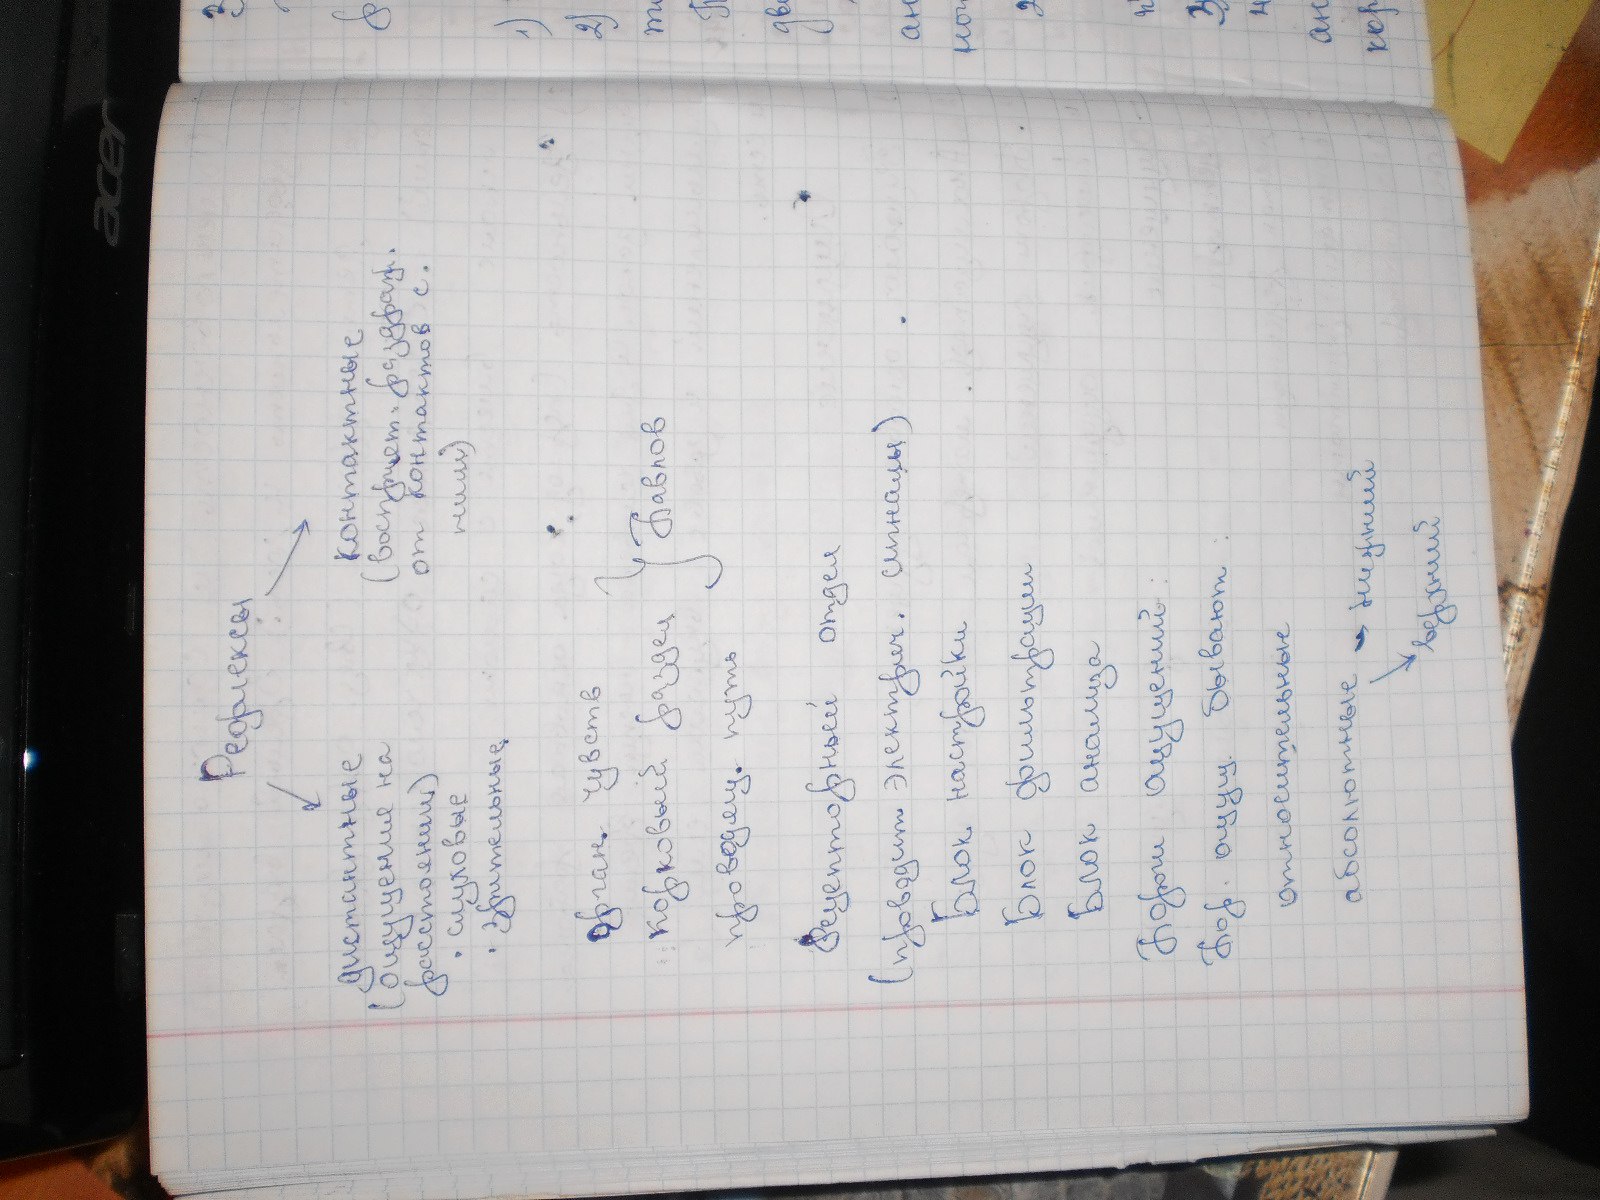 Рефлексы
дистантные
(ощущение на
расстоянии)
• слуховые
• зрительные
контактные
(восприет. раздраж.
от контактов с.
ними)
орган. чувств
корковый раздел
проводящ. путь
} Павлов
Рецепторный отдел
(проводит электрич. сигналы)
Блок настройки
Блок фильтрации
Блок анализа
Порои ощущений:
Пор. ощущ. бывают
относительные
абсолютные → нижний
верхний
acer
1)
2)
3
4